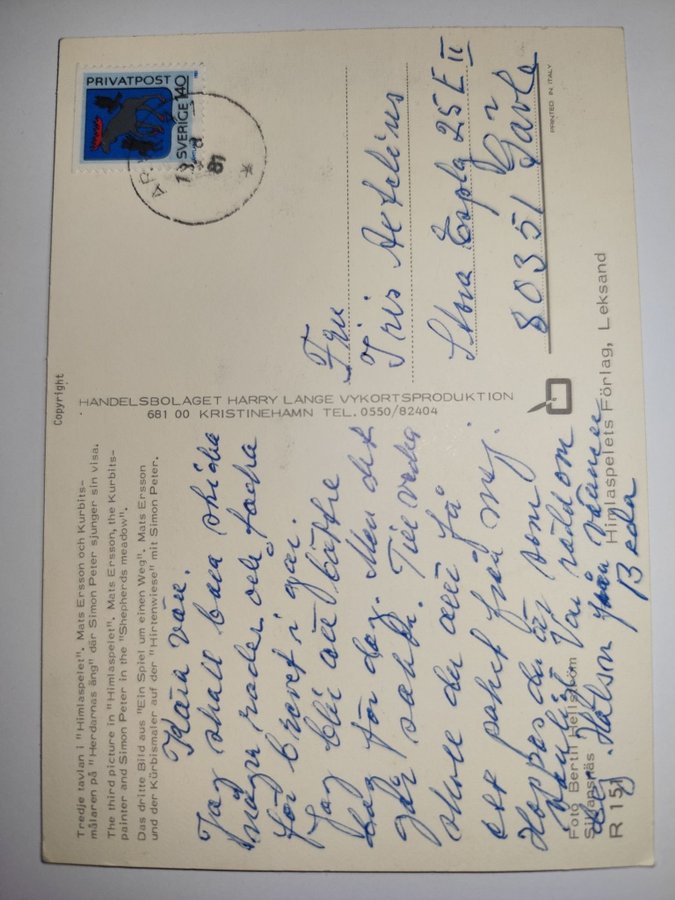 Tredje tavlan i "Himlaspelet". Mats Ersson och Kurbits-
målaren på "Herdarnas äng" där Simon Peter sjunger sin visa.
The third picture in "Himlaspelet". Mats Ersson, the Kurbits-
painter and Simon Peter in the "Shepherds meadow".
Das dritte Bild aus "Ein Spiel um einen Weg". Mats Ersson
und der Kürbismaler auf der "Hirtenwiese" mit Simon Peter.
Kära vän.
Jag skall bara skicka
några rader och tacka
för brevet i går.
Jag blir allt bättre
dag för dag. Men det
går sakta. Till vecka
skall du allt få
ett paket från mej.
Hoppas du är som
vanligt. Var rädd om
dej. Hälsn från vännen
Beda
Foto Bertil Hellström
Siljansnäs
R 151
Himlaspelets Förlag, Leksand
Copyright
HANDELSBOLAGET HARRY LANGE VYKORTSPRODUKTION
681 00 KRISTINEHAMN TEL. 0550/82404
PRIVATPOST
SVERIGE 140
81
Fru
Iris
Stora Espla 25 E II
80351 Gävle
PRINTED IN ITALY